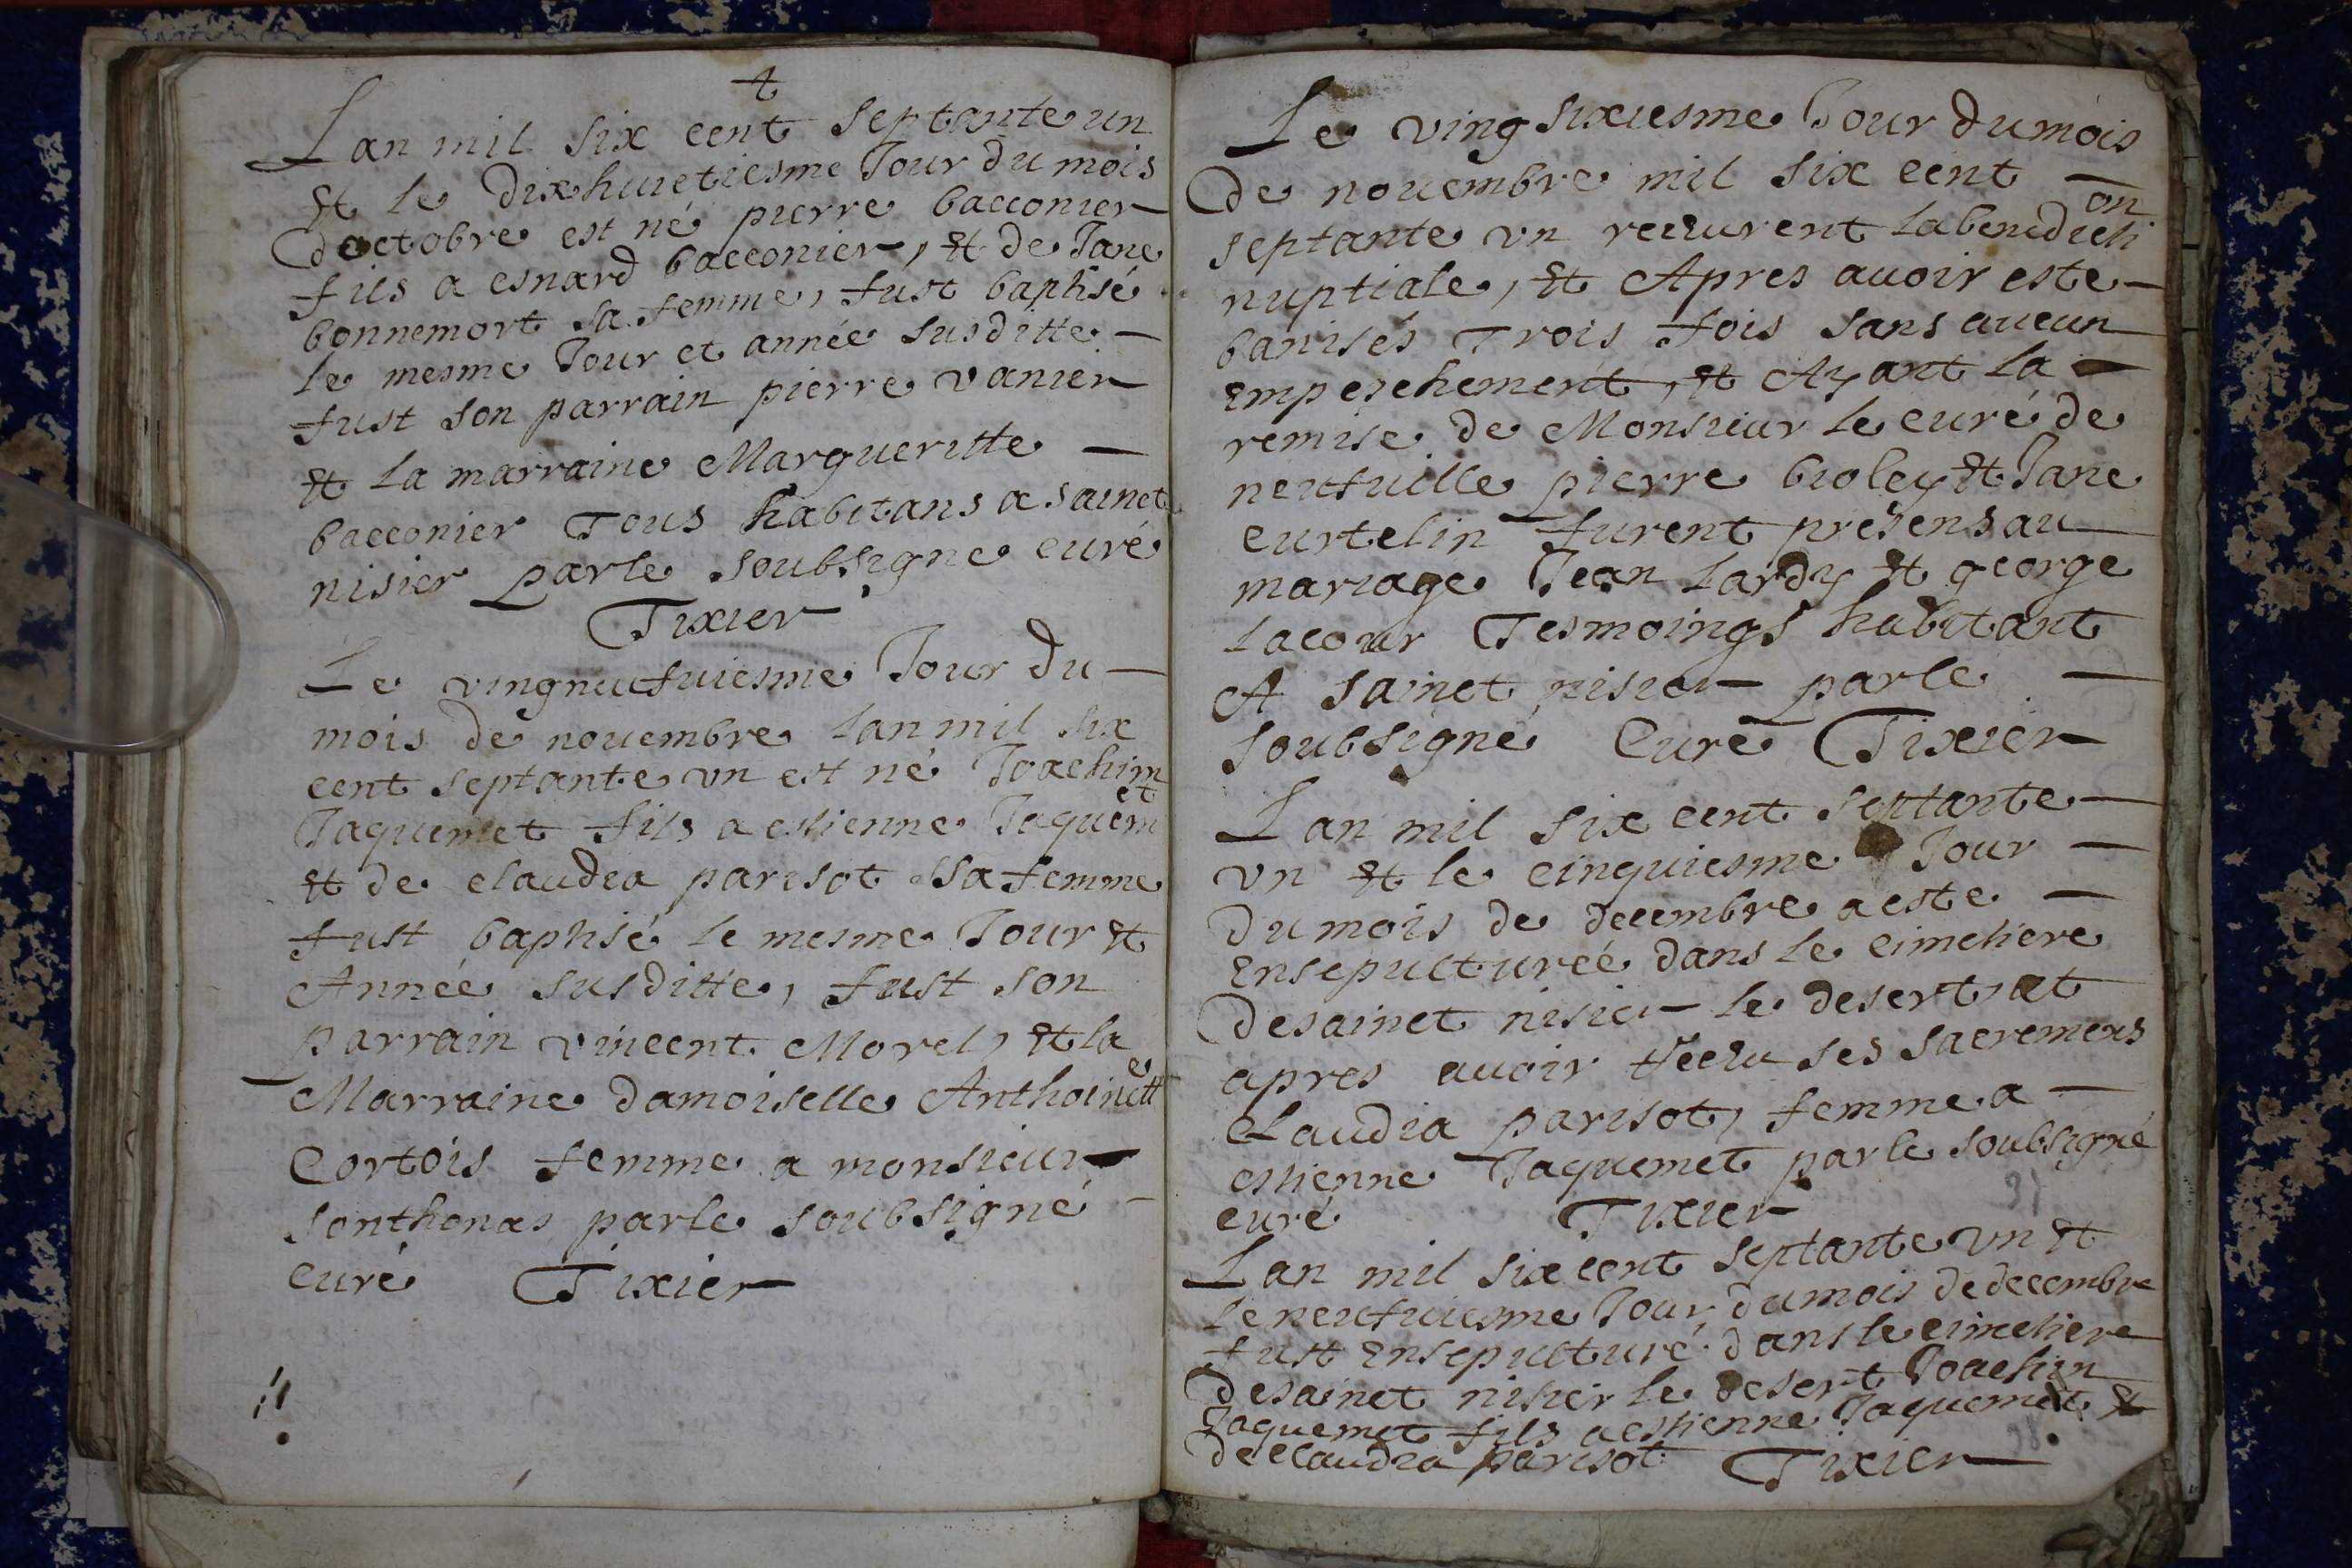 Lan mil six cent septante un
et le dixhuictiesme Jour du mois
doctobre est né pierre bacconier
fils a esnard bacconier, et de Jane
bonnemort sa femme, fust baptisé
le mesme Jour et année susditte
fust son parrain pierre vanier
et la marraine Margueritte
bacconier Tous habitans a sainct
nisier parle soubsigne curé
Tixier
Le vingneufuiesme Jour du
mois de nouembre lan mil six
cent septante vn est né Joachim
Jaquemet fils a estienne Jaquemet
et de claudia parisot sa femme
fust baptisé le mesme Jour et
Année susditte, fust son
parrain vincent Morel, et la
Marraine damoiselle Anthoinette
Cortois femme a monsieur
sonthonas parle soubsigné
curé Tixier
Le ving sixiesme Jour du mois
de nouembre mil six cent
septante vn reczurent la benediction
nuptiale, et Apres auoir este
banisés Trois fois sans aucun
empeschement, et Ayant la
remise de Monsieur le curé de
neufuille pierre broley et Jane
curtelin furent presens au
mariage Jean Lardy et george
Lacour Tesmoings habitant
A sainct nisier parle
soubsigné Curé Tixier
Lan mil six cent septante
vn et le cinquiesme Jour
du mois de decembre a este
ensepulturéé dans le cimetiere
desainct nisier le desert, et
apres auoir reczu ses sacremens
Claudia parisot, femme a
estienne Jaquemet parle soubsigné
curé Tixier
Lan mil six cent septante vn et
le neufuiesme Jour du mois de decembre
fust ensepulturé dans le cimetiere
desainct nisier le desert Joachin
Jaquemet fils a estienne Jaquemet et
de claudia parisot Tixier